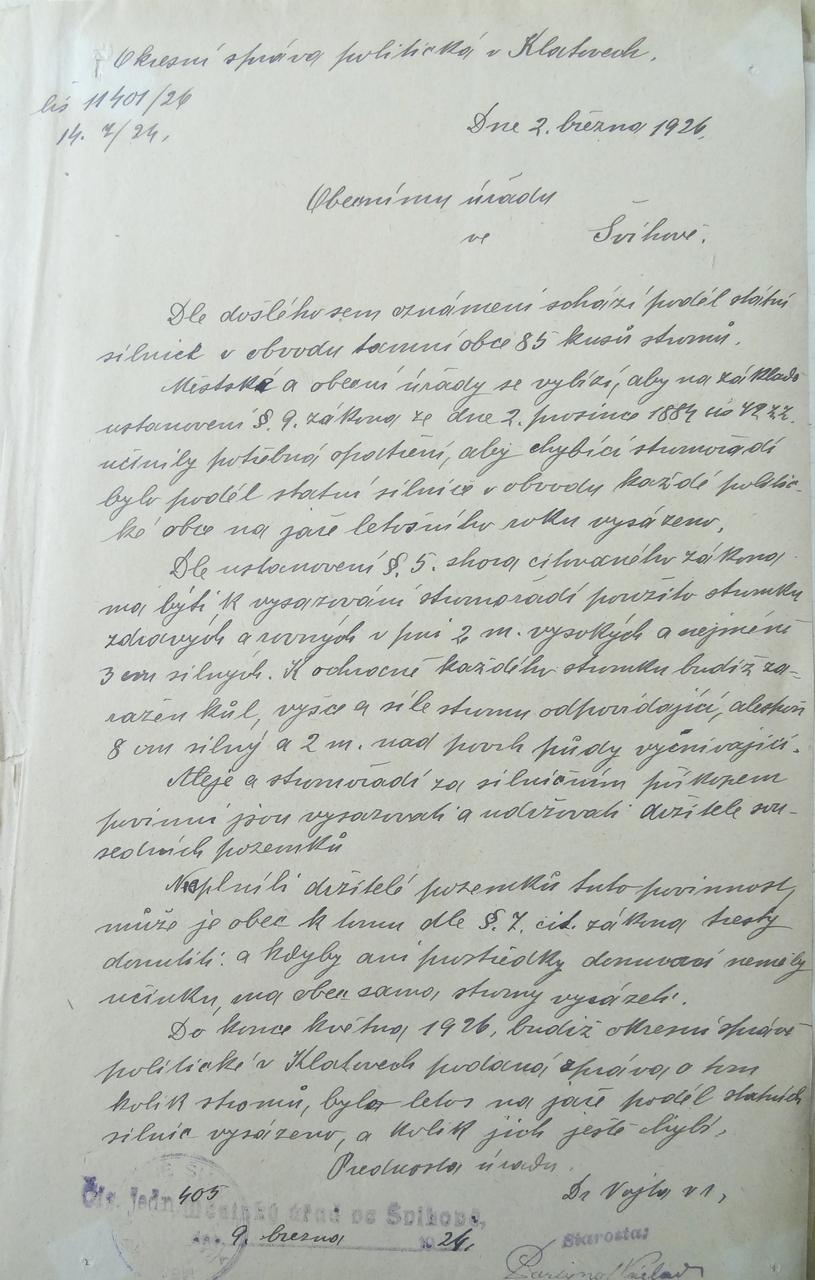 Okresní správa politická v Klatovech.
čís 11401/26
Dne 2. března 1926.
Obecnímu úřadu
ve Švihově.
Dle došlého sem oznámení schází podél státní
silnice v obvodu tamní obce 85 kusů stromů.
Městské a obecní úřady se vybízí, aby na základě
ustanovení §. 9. zákona ze dne 2. prosince 1884 čís 72 z.z.
učinily potřebná opatření, aby chybící stromořadí
bylo podél statní silnice v obvodu každé politic-
ké obce na jaře letošního roku vysázeno.
Dle ustanovení §. 5. shora citovaného zákona
má býti k vysazování stromořadí použito stromku
zdravých a rovných v pni 2 m. vysokých a nejméně
3 cm silných. K ochraně každého stromku budiž za-
ražen kůl, výšce a síle stromu odpovídající, alespoň
8 cm silný a 2 m. nad povrh půdy vyčnívající.
Aleje a stromořadí za silničním příkopem
povinni jsou vysazovati a udržovati držitelé sou-
sedních pozemků
Neplnili držitelé pozemků tuto povinnost,
může je obec k tomu dle §. 7. cit. zákona tresty
donutiti: a kdyby ani prostředky donucací neměly
účinku, má obec sama stromy vysázeti.
Do konce května 1926, budiž okresní správě
politické v Klatovech podaná zpráva o tom
kolik stromů, bylo letos na jaře podél statních
silnic vysázeno, a kolik jich ještě chybí,
Přednosta úřadu.
Dr Vojta vr,
Čís. jedn. 405
Městský úřad ve Švihově,
dne 9. března 1926.
Starosta: